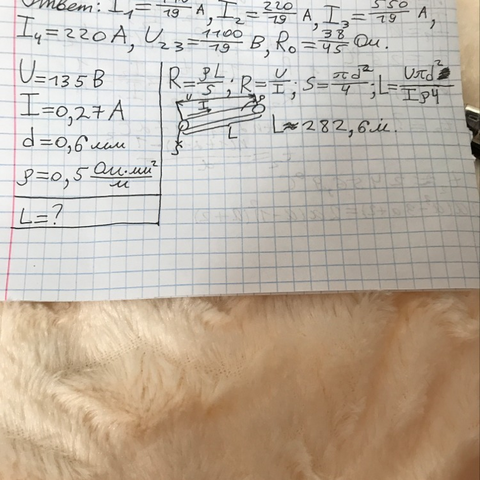 Ответ: I₁=110/19 А, I₂=220/19 А, I₃=550/19 А,
I₄=220 А, U₂₃=1100/19 В, R₀=38/45 Ом.
U=135 В
I=0,27 А
d=0,6 мм
ρ=0,5 Ом·мм²/м
L=?
R=ρL/S; R=U/I; S=πd²/4; L=Uπd²/Iρ4
U
I
L
L≈282,6 м.